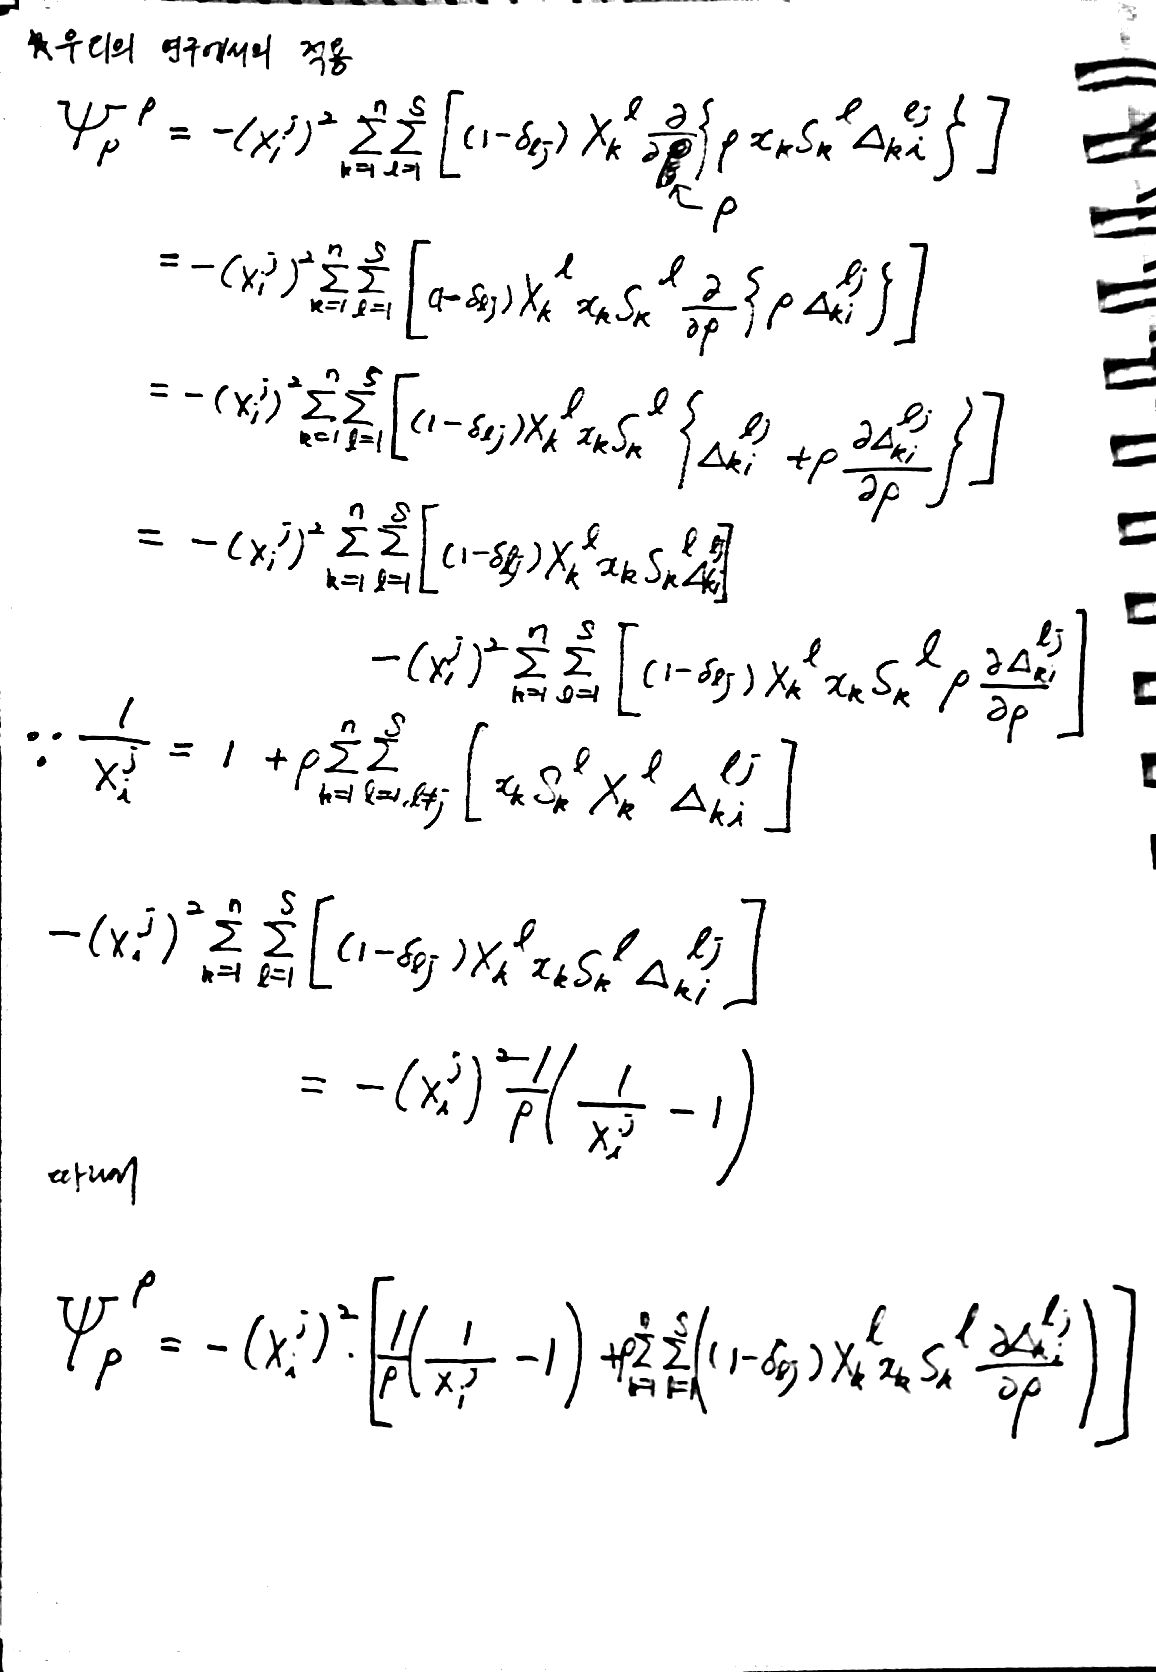 *우리의 연구에서의 적용
Ψ_ρ^ρ = -(X_i^j)² Σ_{k=1}^{n} Σ_{l=1}^{S} [(1-δ_{lj}) X_k^l ∂/∂ρ {ρ x_k S_k^l Δ_{ki}^{lj}}]
ρ
= -(X_i^j)² Σ_{k=1}^{n} Σ_{l=1}^{S} [(1-δ_{lj}) X_k^l x_k S_k^l ∂/∂ρ {ρ Δ_{ki}^{lj}}]
= -(X_i^j)² Σ_{k=1}^{n} Σ_{l=1}^{S} [(1-δ_{lj}) X_k^l x_k S_k^l {Δ_{ki}^{lj} + ρ ∂Δ_{ki}^{lj}/∂ρ}]
= -(X_i^j)² Σ_{k=1}^{n} Σ_{l=1}^{S} [(1-δ_{lj}) X_k^l x_k S_k^l Δ_{ki}^{lj}]
-(X_i^j)² Σ_{k=1}^{n} Σ_{l=1}^{S} [(1-δ_{lj}) X_k^l x_k S_k^l ρ ∂Δ_{ki}^{lj}/∂ρ]
∵ 1/X_i^j = 1 + ρ Σ_{k=1}^{n} Σ_{l=1, l≠j}^{S} [x_k S_k^l X_k^l Δ_{ki}^{lj}]
-(X_i^j)² Σ_{k=1}^{n} Σ_{l=1}^{S} [(1-δ_{lj}) X_k^l x_k S_k^l Δ_{ki}^{lj}]
= -(X_i^j)² 1/ρ (1/X_i^j - 1)
따라서
Ψ_ρ^ρ = -(X_i^j)² · [1/ρ (1/X_i^j - 1) + ρ Σ_{k=1}^{n} Σ_{l=1}^{S} ((1-δ_{lj}) X_k^l x_k S_k^l ∂Δ_{ki}^{lj}/∂ρ)]